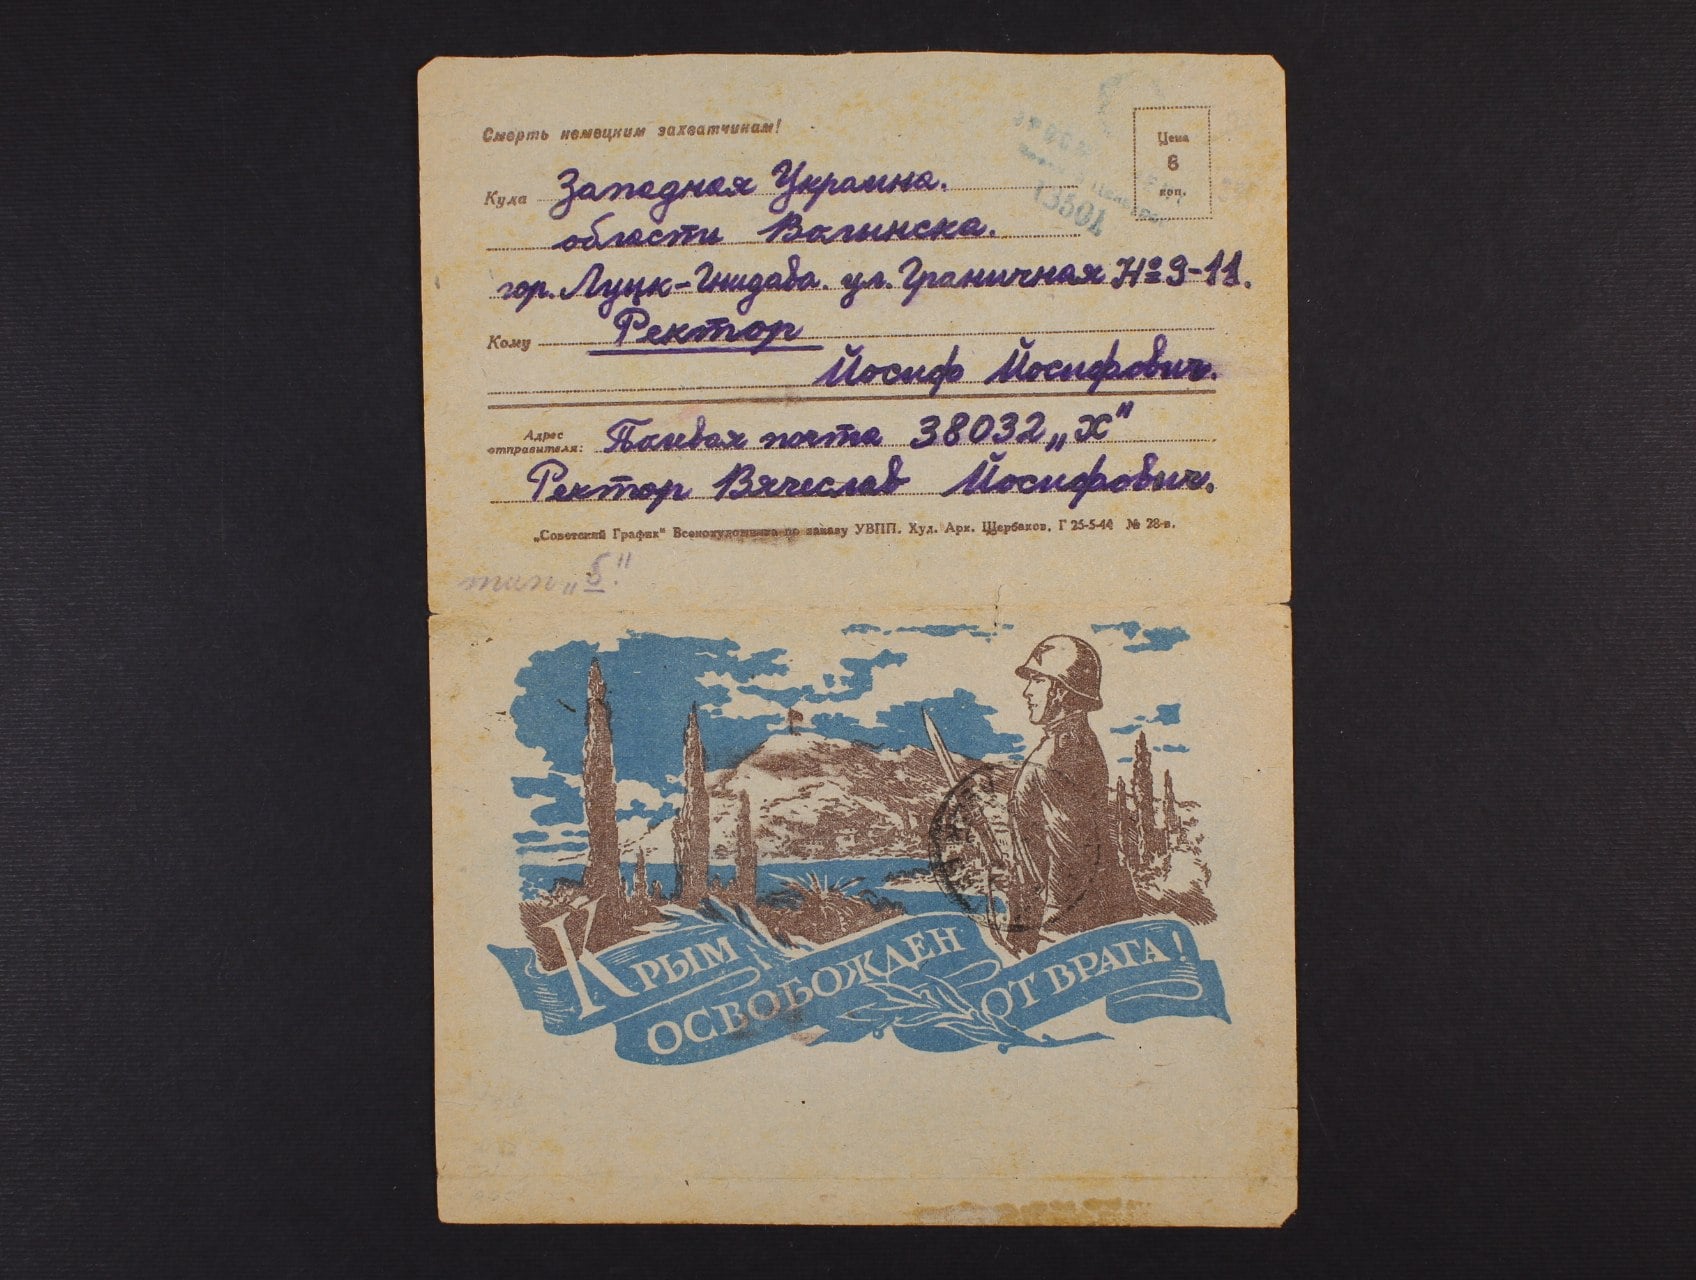 Смерть немецким захватчикам!
Цена
6
коп.
Куда Западная Украина.
области Волынска.
13501
гор. Луцк-Гнидава. ул. Граничная № 9-11.
Кому Ректор
Йосиф Йосифович.
Адрес
отправителя: Полевая почта 38032 „Х"
Ректор Вячеслав Йосифович.
„Советский График" Всекохудожника по заказу УВПП. Худ. Арк. Щербаков. Г 25-5-44 № 28-в.
КРЫМ
ОСВОБОЖДЕН
ОТ ВРАГА!